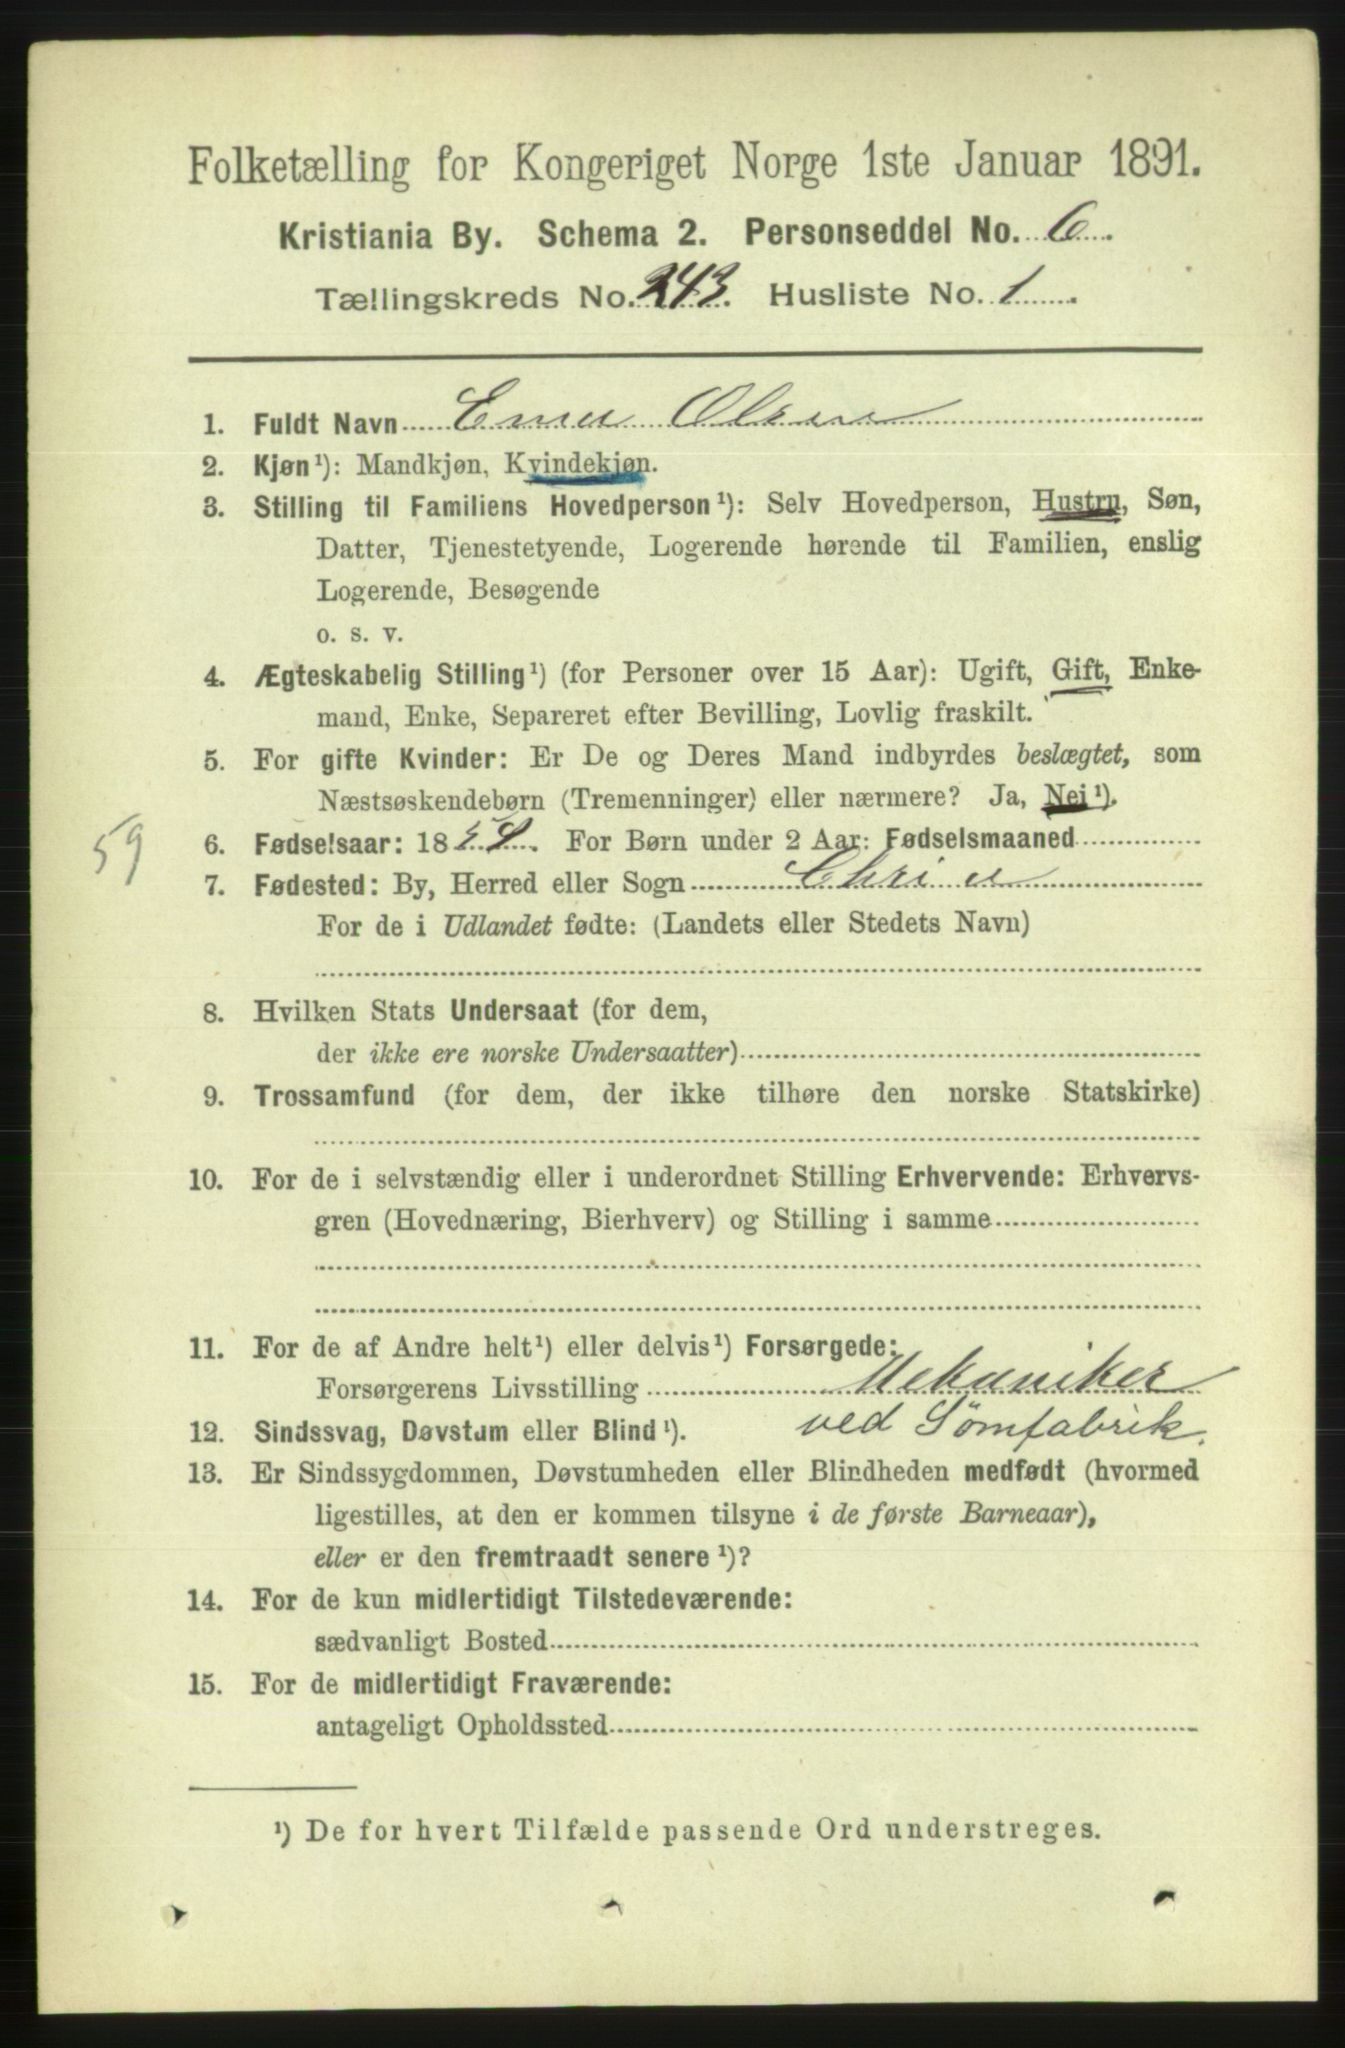 Folketælling for Kongeriget Norge 1ste Januar 1891.
Kristiania By. Schema 2. Personseddel No. 6.
Tællingskreds No. 243. Husliste No. 1.
1. Fuldt Navn Olsen
2. Kjøn¹): Mandkjøn, Kvindekjøn.
3. Stilling til Familiens Hovedperson¹): Selv Hovedperson, Hustru, Søn,
Datter, Tjenestetyende, Logerende hørende til Familien, enslig
Logerende, Besøgende
o. s. v.
4. Ægteskabelig Stilling¹) (for Personer over 15 Aar): Ugift, Gift, Enke-
mand, Enke, Separeret efter Bevilling, Lovlig fraskilt.
5. For gifte Kvinder: Er De og Deres Mand indbyrdes beslægtet, som
Næstsøskendebørn (Tremenninger) eller nærmere? Ja, Nei¹).
59
6. Fødselsaar: 1859. For Børn under 2 Aar: Fødselsmaaned
7. Fødested: By, Herred eller Sogn Chria
For de i Udlandet fødte: (Landets eller Stedets Navn)
8. Hvilken Stats Undersaat (for dem,
der ikke ere norske Undersaatter)
9. Trossamfund (for dem, der ikke tilhøre den norske Statskirke)
10. For de i selvstændig eller i underordnet Stilling Erhvervende: Erhvervs-
gren (Hovednæring, Bierhverv) og Stilling i samme
11. For de af Andre helt¹) eller delvis¹) Forsørgede:
Forsørgerens Livsstilling Mekaniker
ved Sömfabrik.
12. Sindssvag, Døvstum eller Blind¹).
13. Er Sindssygdommen, Døvstumheden eller Blindheden medfødt (hvormed
ligestilles, at den er kommen tilsyne i de første Barneaar),
eller er den fremtraadt senere¹)?
14. For de kun midlertidigt Tilstedeværende:
sædvanligt Bosted
15. For de midlertidigt Fraværende:
antageligt Opholdssted
¹) De for hvert Tilfælde passende Ord understreges.